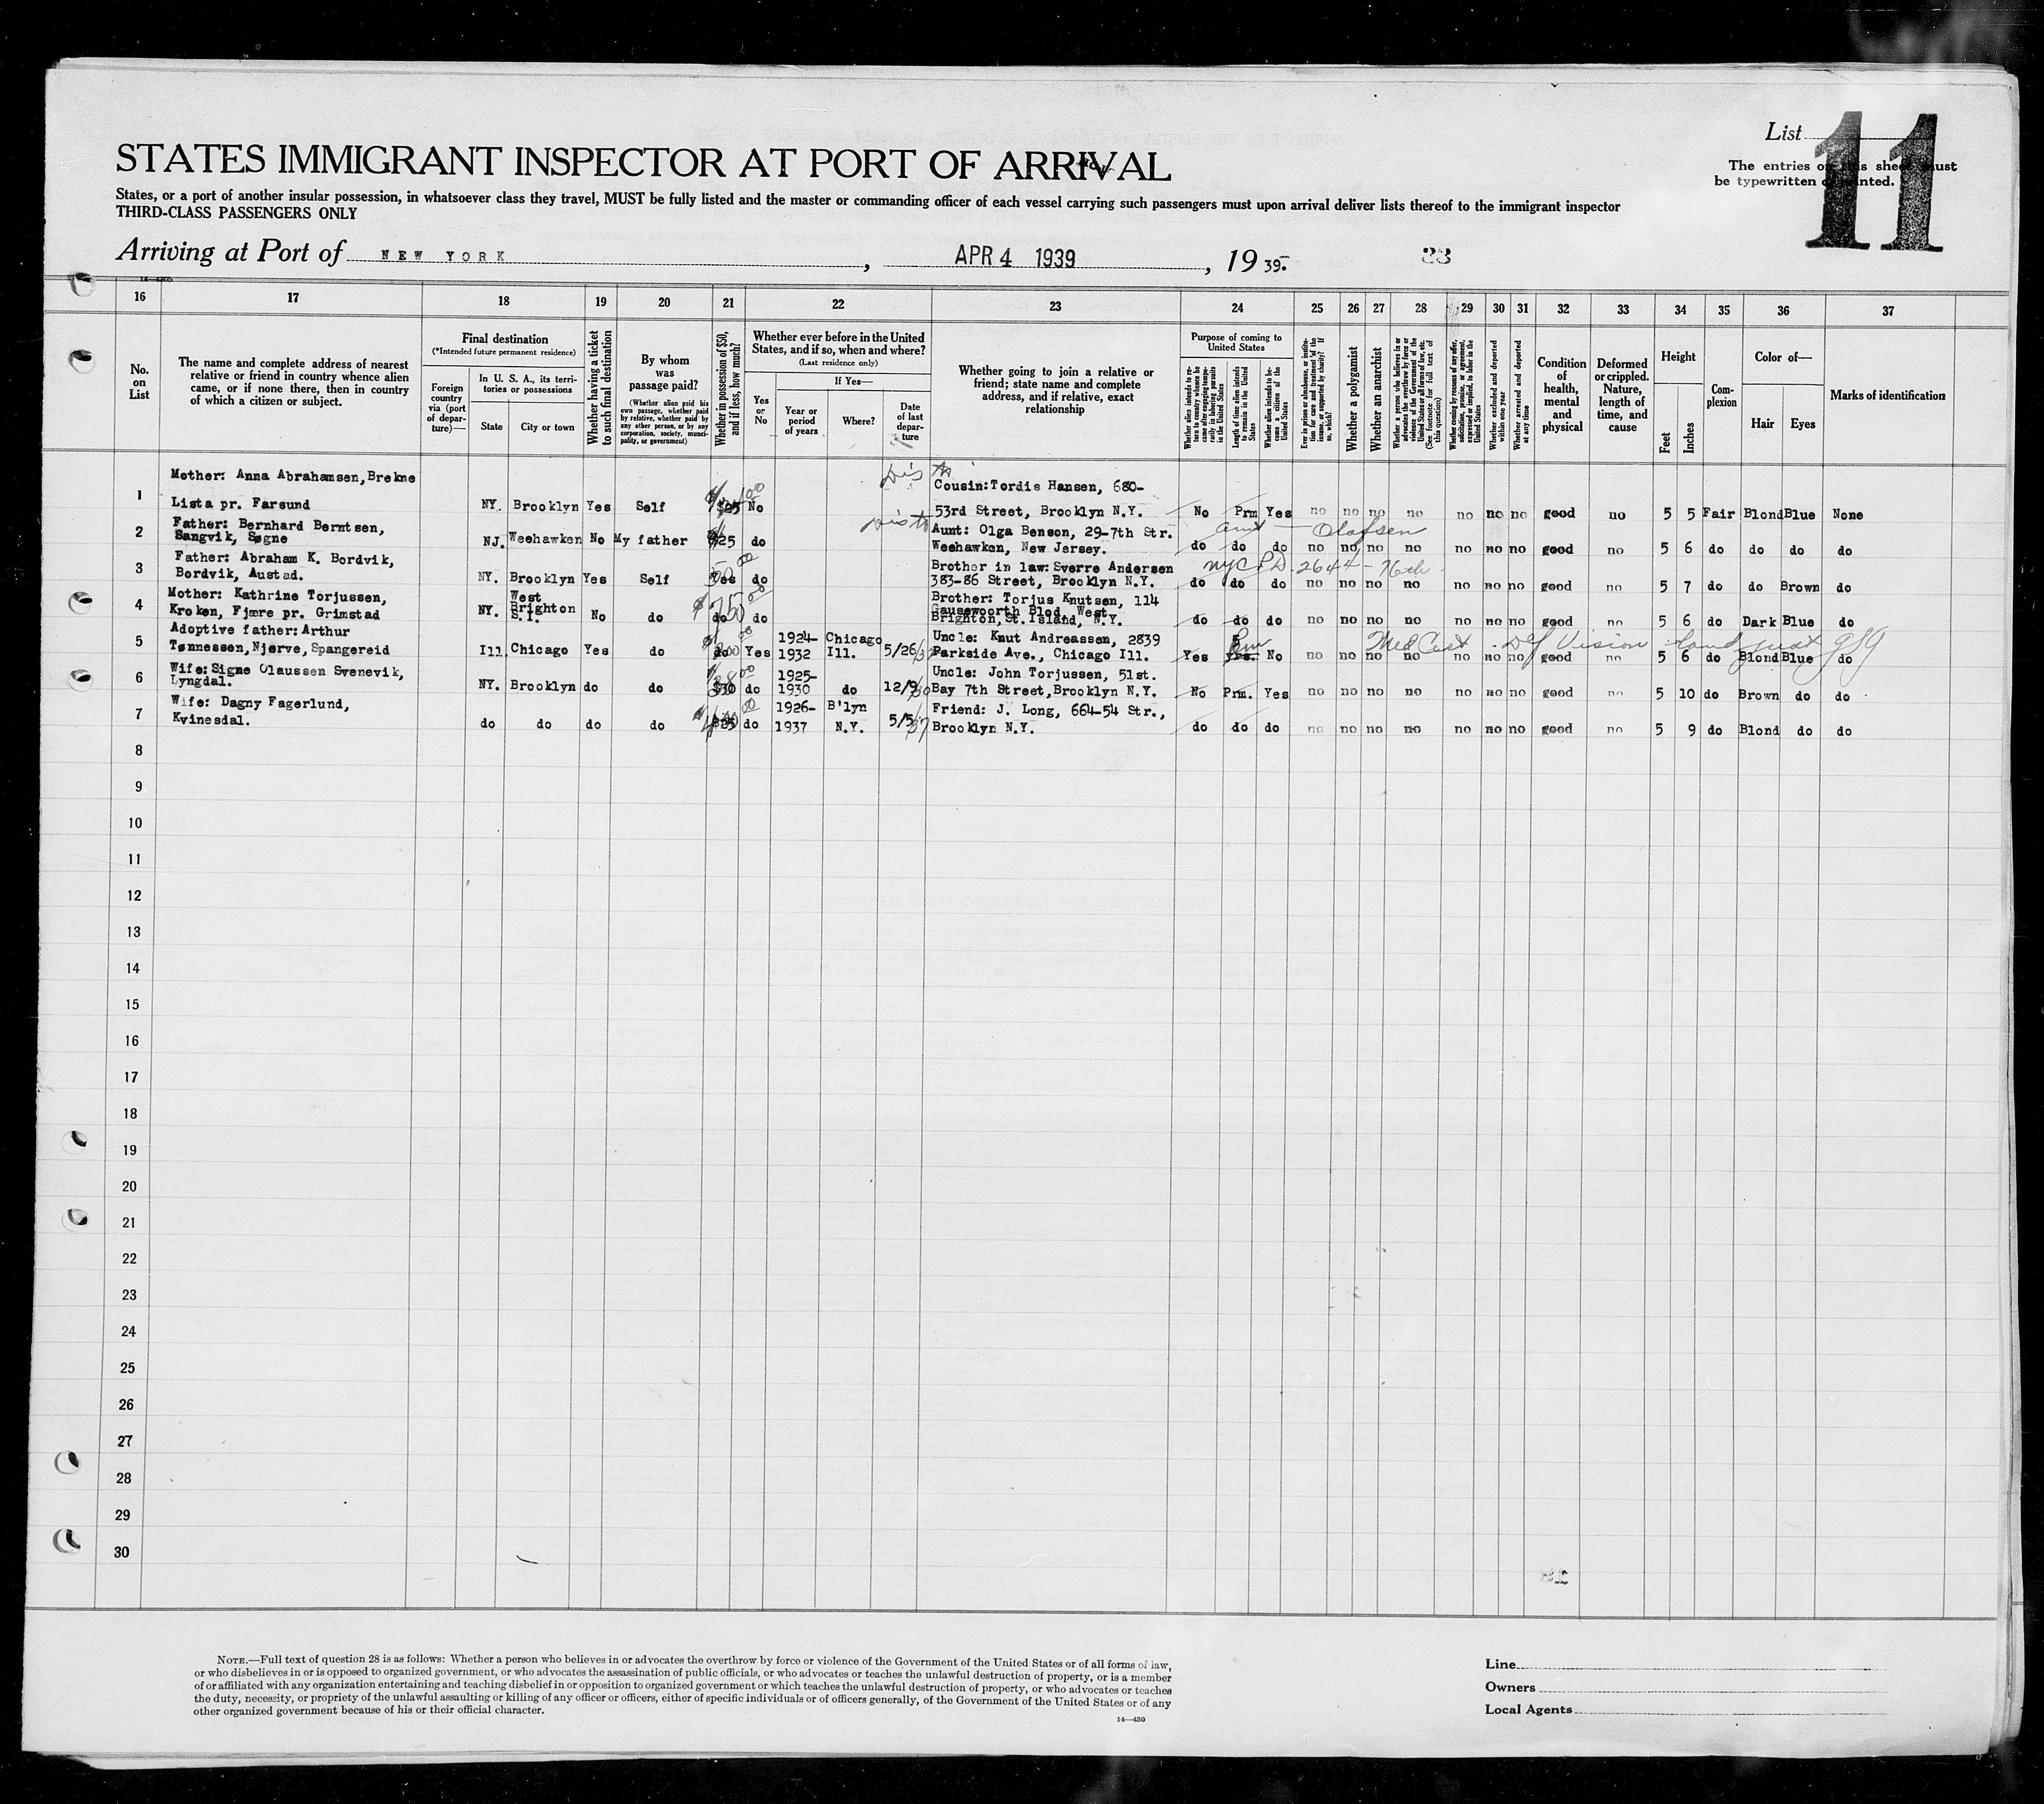 List 11
The entries on this sheet must
be typewritten or printed.
STATES IMMIGRANT INSPECTOR AT PORT OF ARRIVAL
States, or a port of another insular possession, in whatsoever class they travel, MUST be fully listed and the master or commanding officer of each vessel carrying such passengers must upon arrival deliver lists thereof to the immigrant inspector
THIRD-CLASS PASSENGERS ONLY
Arriving at Port of NEW YORK, APR 4 1939, 1939. 33
16 17 18 19 20 21 22 23 24 25 26 27 28 29 30 31 32 33 34 35 36 37
No. on List
The name and complete address of nearest relative or friend in country whence alien came, or if none there, then in country of which a citizen or subject.
Final destination
(*Intended future permanent residence)
Foreign country via (port of departure)—
In U. S. A., its territories or possessions
State
City or town
Whether having a ticket to such final destination
By whom was passage paid?
(Whether alien paid his own passage, whether paid by relative, whether paid by any other person, or by any corporation, society, municipality, or government)
Whether in possession of $50, and if less, how much?
Whether ever before in the United States, and if so, when and where?
(Last residence only)
Yes or No
If Yes—
Year or period of years
Where?
Date of last departure
Whether going to join a relative or friend; state name and complete address, and if relative, exact relationship
Purpose of coming to United States
Whether alien intends to return to country whence he came after engaging temporarily in laboring pursuits in the United States
Length of time alien intends to remain in the United States
Whether alien intends to become a citizen of the United States
Ever in prison or almshouse, or institution for care and treatment of the insane, or supported by charity? If so, which?
Whether a polygamist
Whether an anarchist
Whether a person who believes in or advocates the overthrow by force or violence of the Government of the United States or all forms of law, etc. (See footnote for full text of this question)
Whether coming by reason of any offer, solicitation, promise, or agreement, expressed or implied, to labor in the United States
Whether excluded and deported within one year
Whether arrested and deported at any time
Condition of health, mental and physical
Deformed or crippled. Nature, length of time, and cause
Height
Feet
Inches
Complexion
Color of—
Hair
Eyes
Marks of identification
1 Mother: Anna Abrahamsen, Brekne
Lista pr. Farsund NY. Brooklyn Yes Self $25 No
Cousin: Tordis Hansen, 680-
53rd Street, Brooklyn N.Y. No Prm Yes no no no no no no no good no 5 5 Fair Blond Blue None
2 Father: Bernhard Berntsen,
Sangvik, Søgne NJ. Weehawken No My father $25 do
Aunt: Olga Benson, 29-7th Str.
Weehawken, New Jersey. do do do no no no no no no no good no 5 6 do do do do
aunt — Olafsen
3 Father: Abraham K. Bordvik,
Bordvik, Austad. NY. Brooklyn Yes Self Yes do
Brother in law: Sverre Andersen
383-86 Street, Brooklyn N.Y. do do do no no no no no no no good no 5 7 do do Brown do
NYC PD 2644 - 76th
4 Mother: Kathrine Torjussen,
Kroken, Fjære pr. Grimstad NY. West Brighton S.I. No do do do
Brother: Torjus Knutsen, 114
Gauseworth Blod, West
Brighton, St. Island, N.Y. do do do no no no no no no no good no 5 6 do Dark Blue do
5 Adoptive father: Arthur
Tønnessen, Njerve, Spangereid Ill. Chicago Yes do do Yes 1924-1932 Chicago Ill. 5/26/32
Uncle: Knut Andreassen, 2839
Parkside Ave., Chicago Ill. Yes Yes. No no no no no no no no good no 5 6 do Blond Blue do
Prm Med Cert. Def Vision
6 Wife: Signe Olaussen Svenevik,
Lyngdal. NY. Brooklyn do do $30 do 1925-1930 do 12/9/30
Uncle: John Torjussen, 51st.
Bay 7th Street, Brooklyn N.Y. No Prm. Yes no no no no no no no good no 5 10 do Brown do do
7 Wife: Dagny Fagerlund,
Kvinesdal. do do do do $25 do 1926-1937 B'lyn N.Y. 5/5/37
Friend: J. Long, 664-54 Str.,
Brooklyn N.Y. do do do no no no no no no no good no 5 9 do Blond do do
8
9
10
11
12
13
14
15
16
17
18
19
20
21
22
23
24
25
26
27
28
29
30
NOTE.—Full text of question 28 is as follows: Whether a person who believes in or advocates the overthrow by force or violence of the Government of the United States or of all forms of law,
or who disbelieves in or is opposed to organized government, or who advocates the assassination of public officials, or who advocates or teaches the unlawful destruction of property, or is a member
of or affiliated with any organization entertaining and teaching disbelief in or opposition to organized government or which teaches the unlawful destruction of property, or who advocates or teaches
the duty, necessity, or propriety of the unlawful assaulting or killing of any officer or officers, either of specific individuals or of officers generally, of the Government of the United States or of any
other organized government because of his or their official character.
14—430
Line
Owners
Local Agents